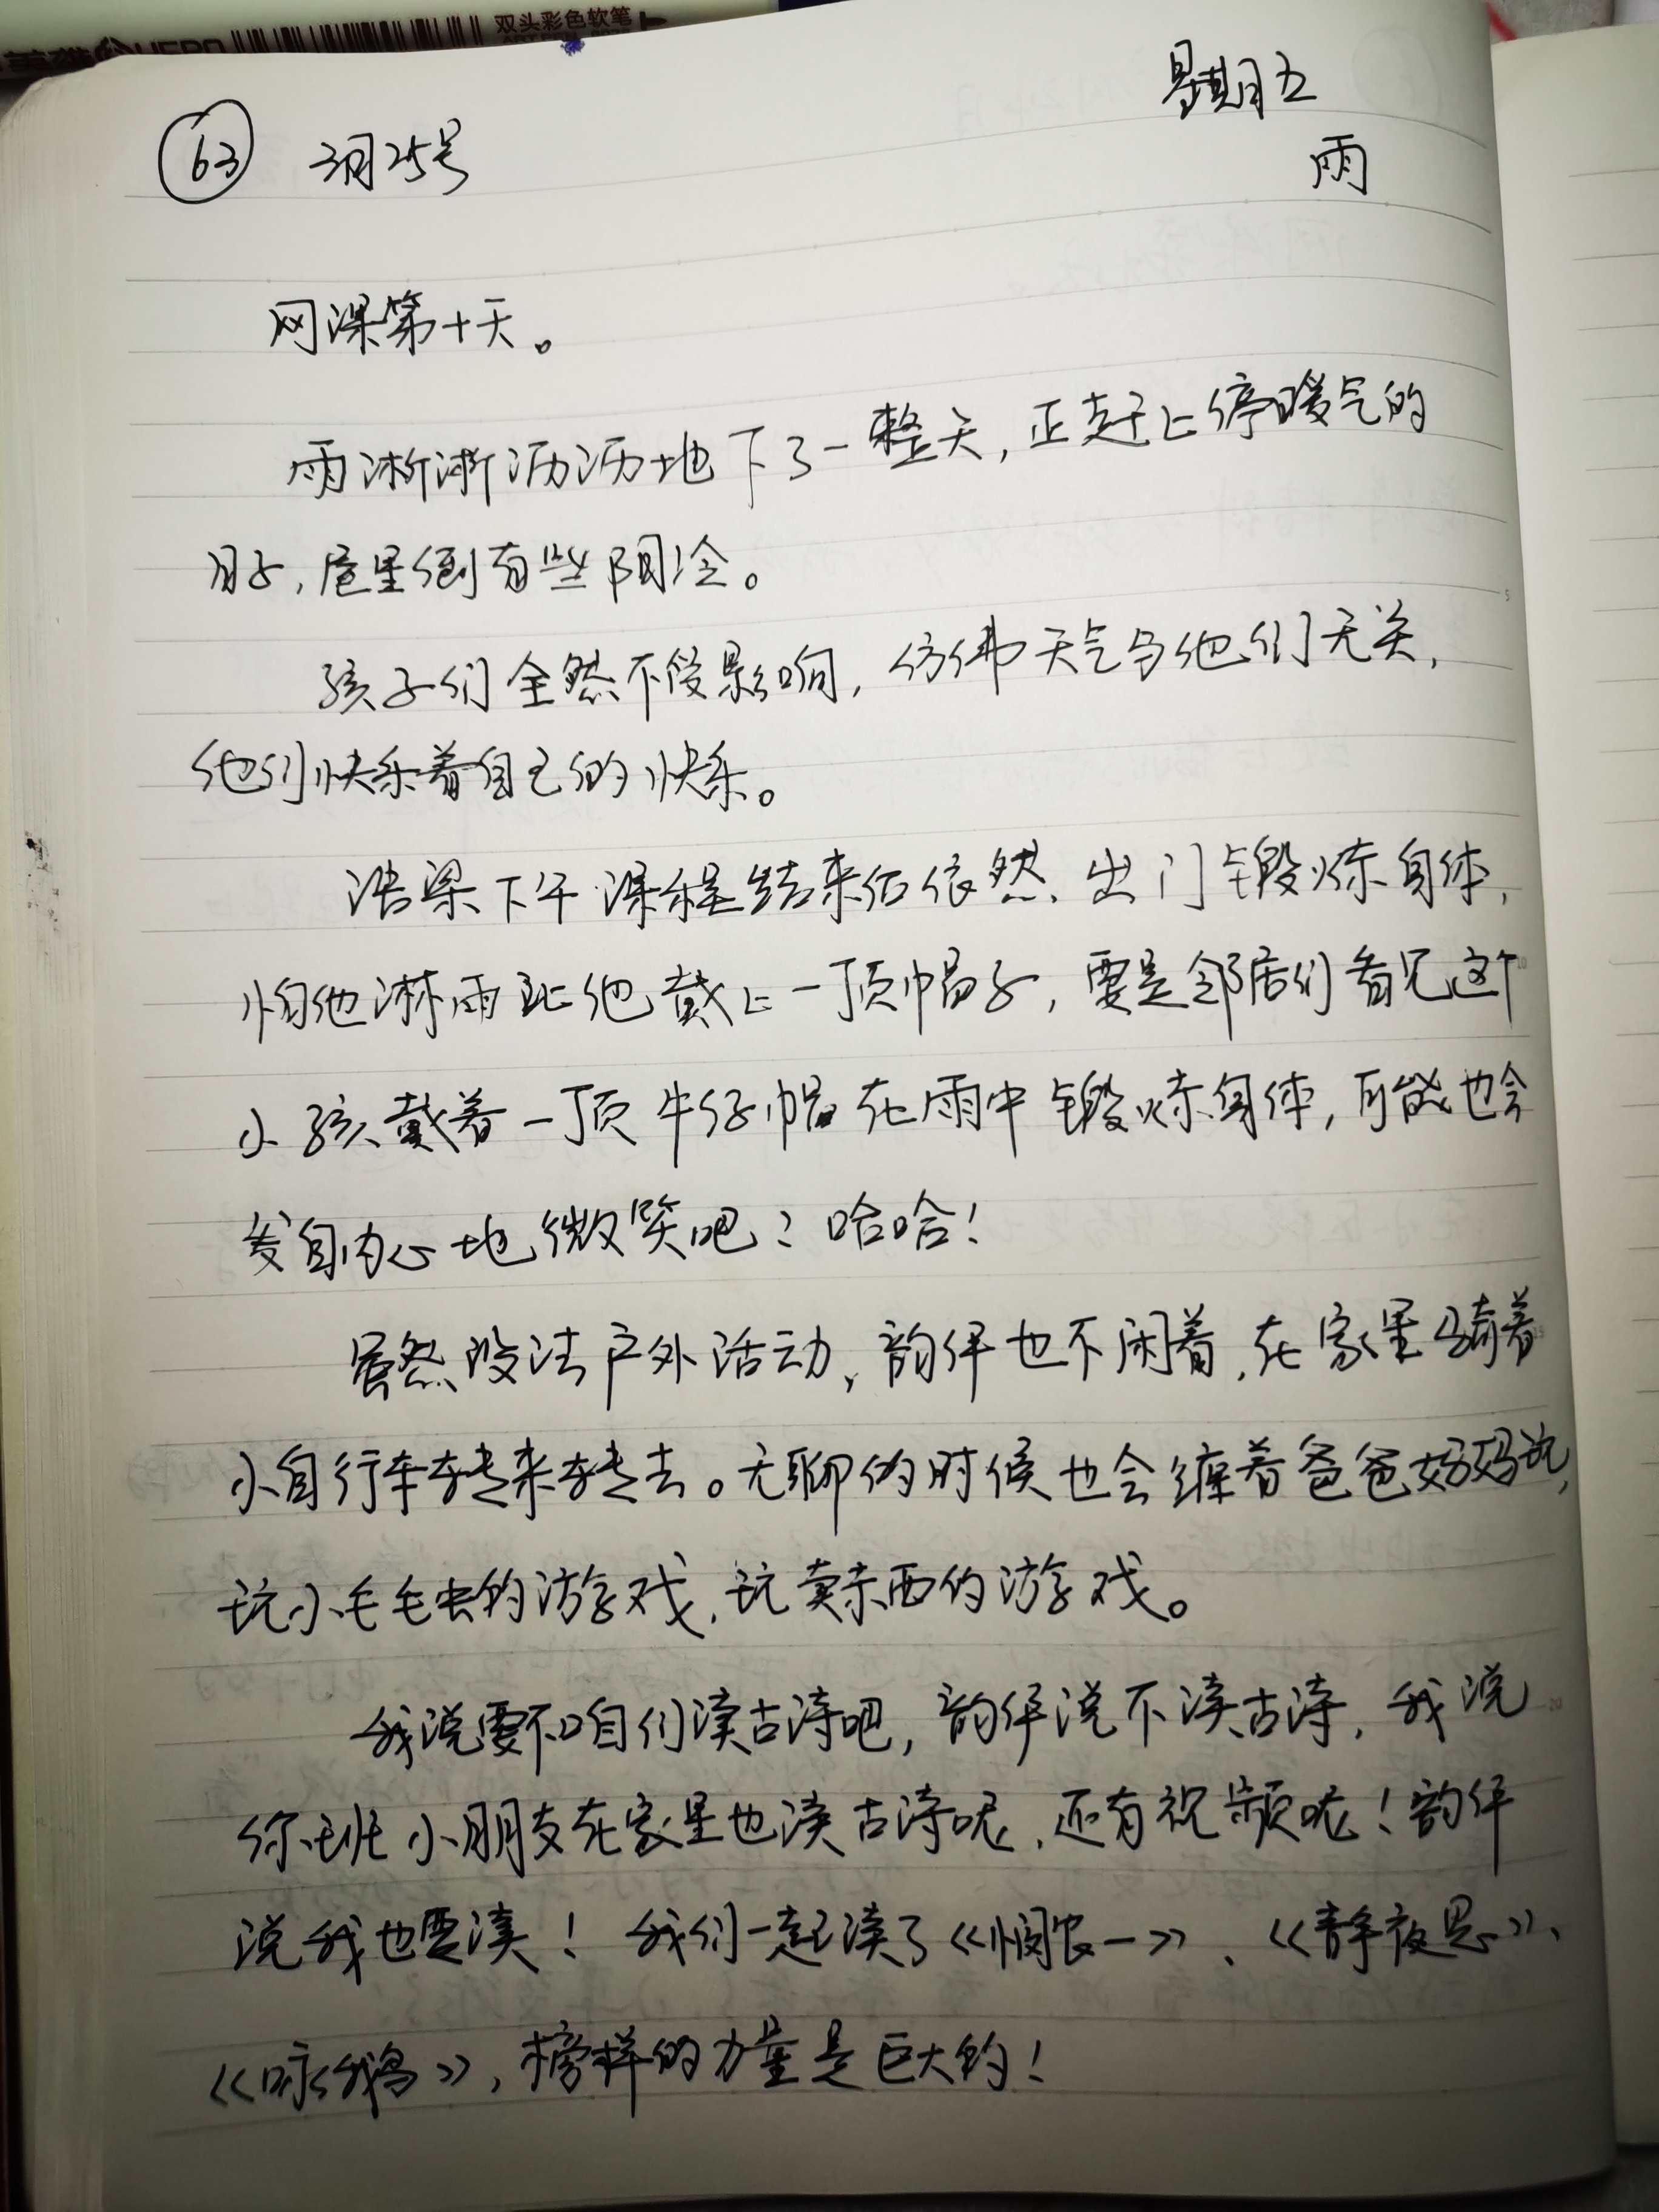 双头彩色软笔
HERO
星期五
63 3月25号
雨
网课第十天。
雨淅淅沥沥地下了一整天，正赶上停暖气的
日子，屋里倒有些阴冷。
孩子们全然不受影响，仿佛天气与他们无关，
他们快乐着自己的快乐。
浩梁下午课程结束后依然出门锻炼身体，
怕他淋雨让他戴上一顶帽子，要是邻居们看见这个
小孩戴着一顶牛仔帽在雨中锻炼身体，可能也会
发自内心地微笑吧？哈哈！
虽然没法户外活动，韵伊也不闲着，在家里骑着
小自行车转来转去。无聊的时候也会缠着爸爸妈妈玩，
玩小毛毛虫的游戏，玩卖东西的游戏。
我说要不咱们读古诗吧，韵伊说不读古诗，我说
你班小朋友在家里也读古诗呢，还有视频呢！韵伊
说我也要读！我们一起读了《悯农一》、《静夜思》、
《咏鹅》，榜样的力量是巨大的！